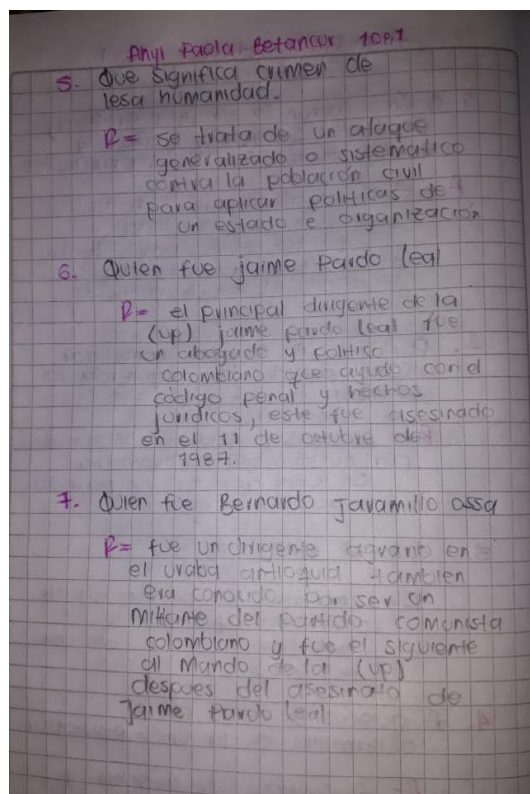 Anyi Paola Betancur 10A1
5. Que significa crimen de
lesa humanidad.
R= se trata de un ataque
generalizado o sistematico
contra la población civil
para aplicar politicas de
un estado e organización
6. Quien fue jaime Pardo leal
R= el principal dirigente de la
(up) jaime pardo leal fue
un abogado y politico
colombiano que ayudo con el
código penal y hechos
juridicos, este fue asesinado
en el 11 de octubre de
1987.
7. Quien fue Bernardo Jaramillo ossa
R= fue un dirigente agrario en
el uraba antioquia tambien
era conocido por ser un
militante del partido comunista
colombiano y fue el siguiente
al mando de la (up)
despues del asesinato de
Jaime Pardo leal